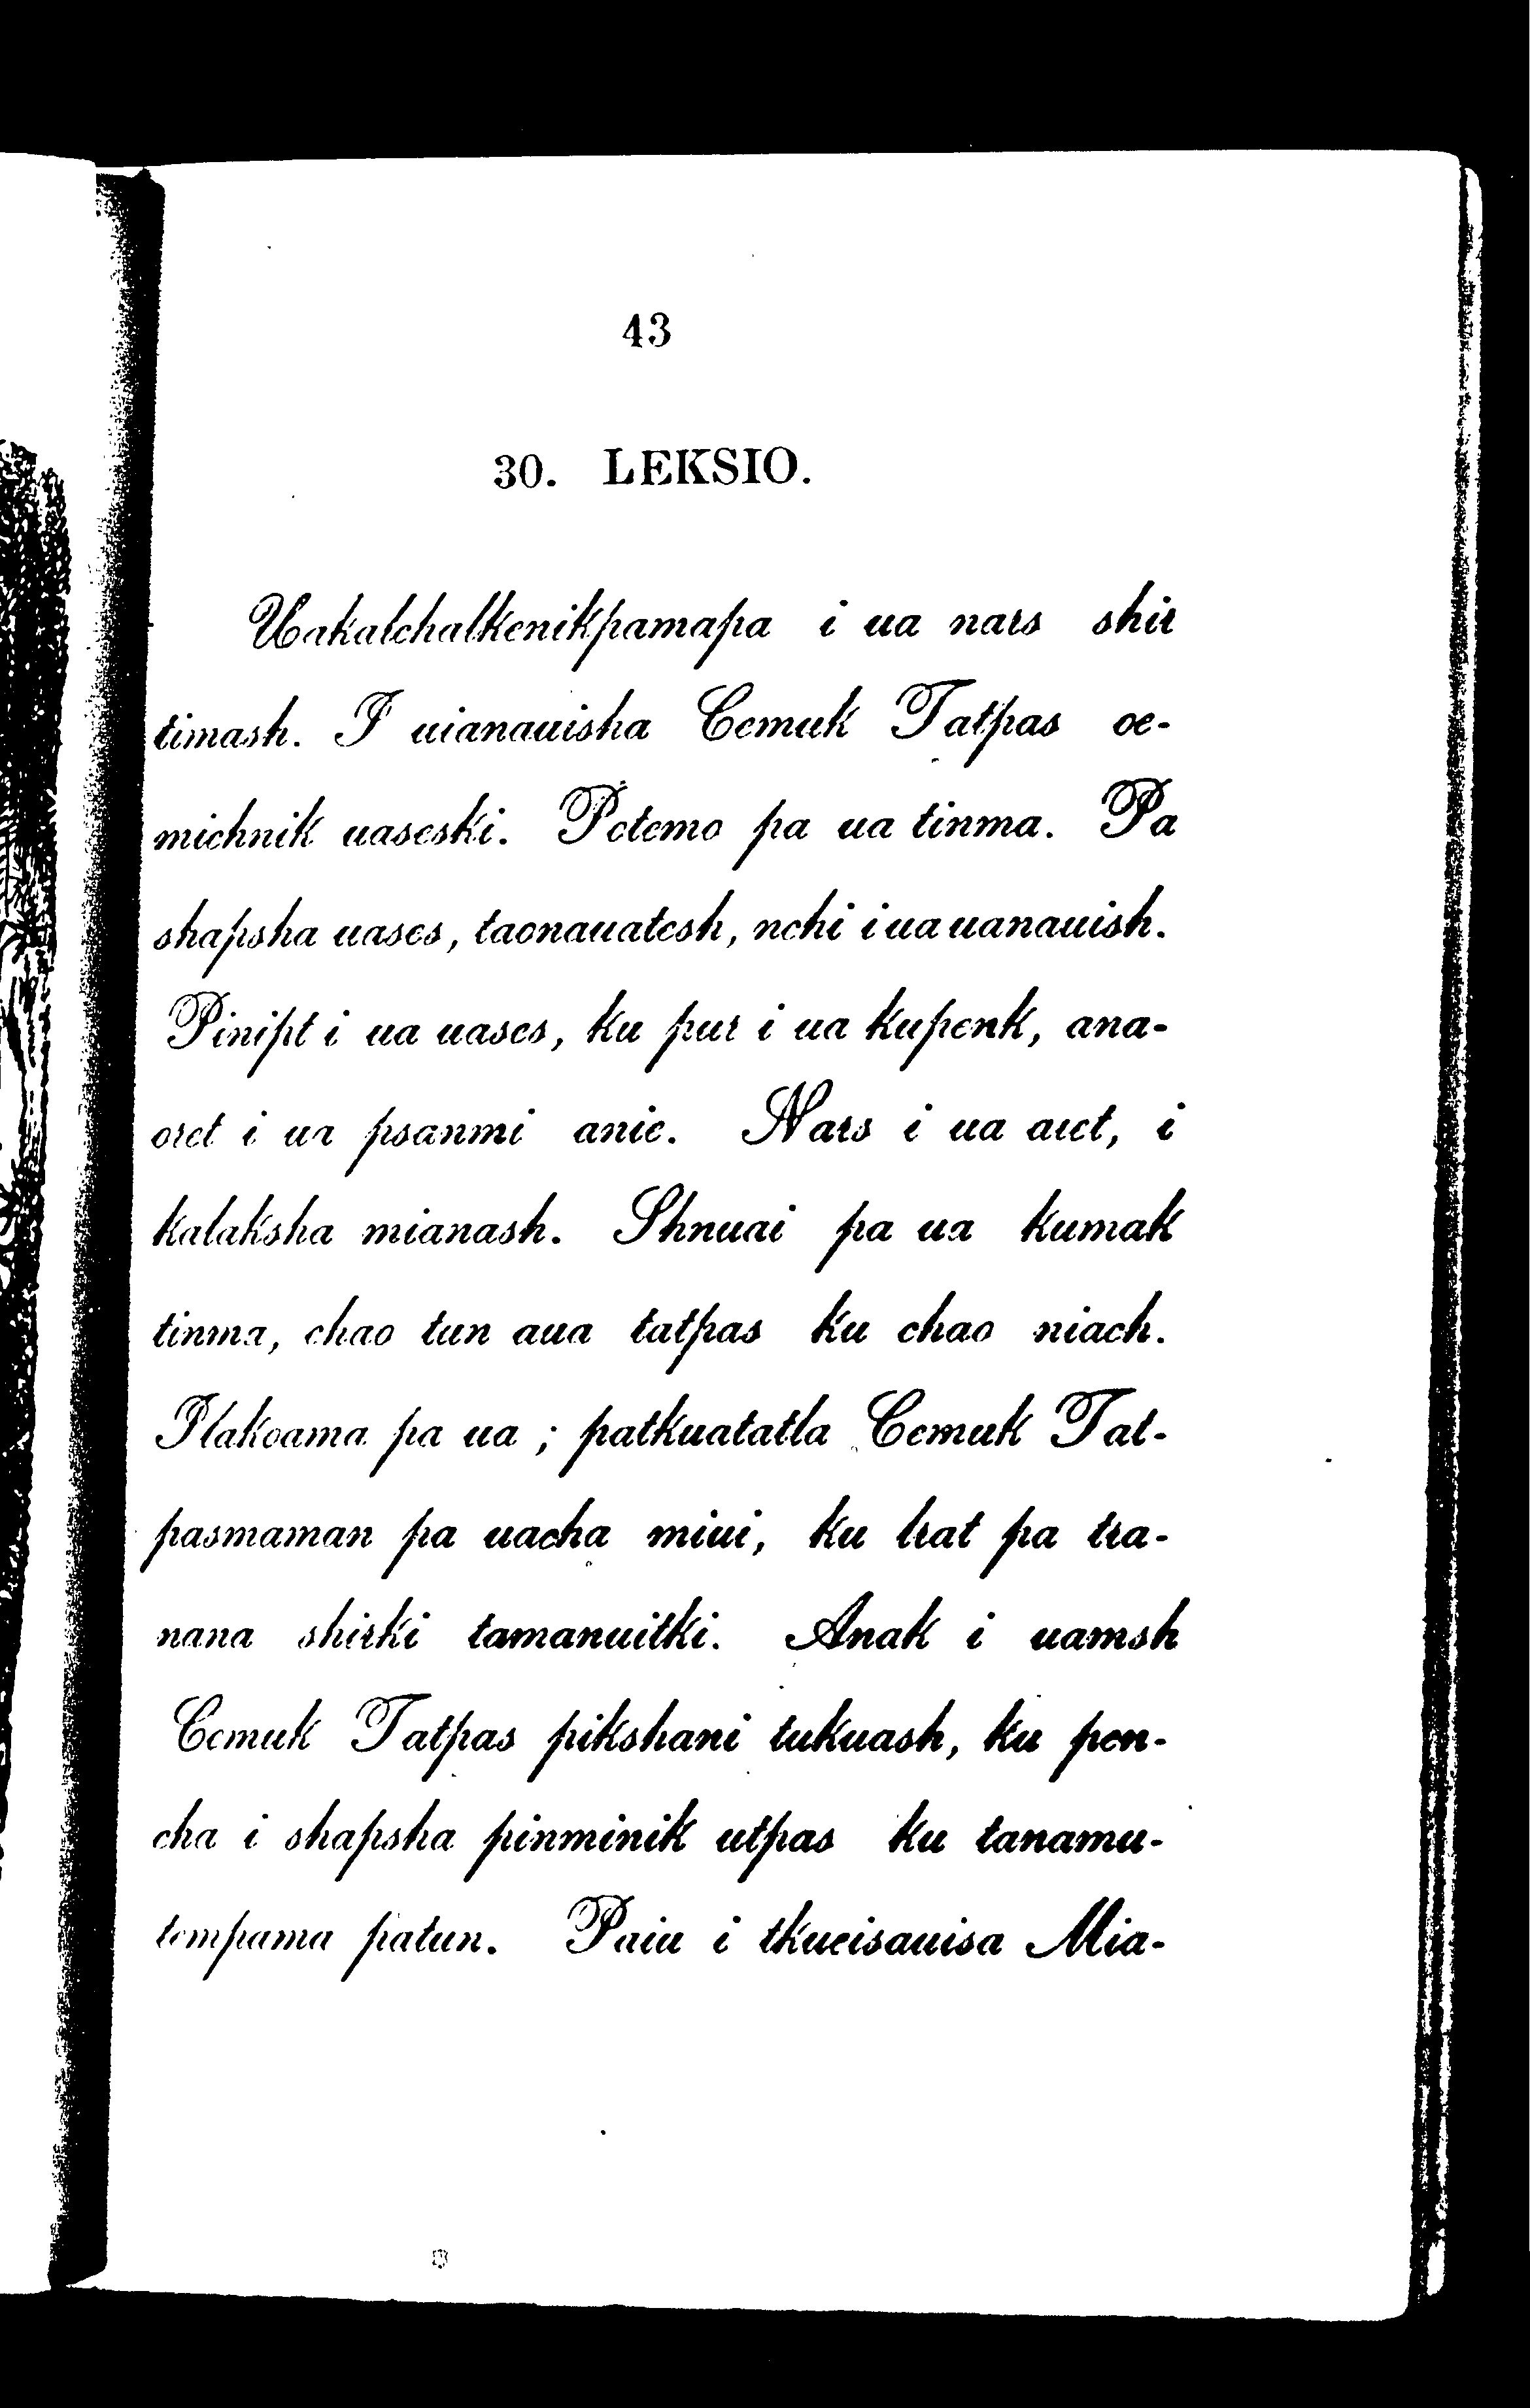 43
30. LEKSIO.
Uakalchalkenikpamapa i ua nars shir
timash. I uianauisha Cemuk Tatpas oe-
michnik uaseski. Petemo pa ua tinma. Pa
shapsha uases, taonauatesh, nchi i ua uanauish.
Pinipt i ua uases, ku pur i ua kupenk, ana-
oret i ua psanmi anie. Nars i ua aret, i
kalaksha mianash. Shnuai pa ua kumak
tinma, chao tun aua tatpas ku chao niach.
Plakoama pa ua ; patkuatatla Cemuk Tat-
pasmaman pa uacha miui, ku lrat pa tra-
nana shirki tamanuitki. Anak i uamsh
Cemuk Tatpas pikshani tukuash, ku pen-
cha i shapsha pinminik utpas ku tanamu-
tempama patun. Paiu i tkueisauisa Mia-